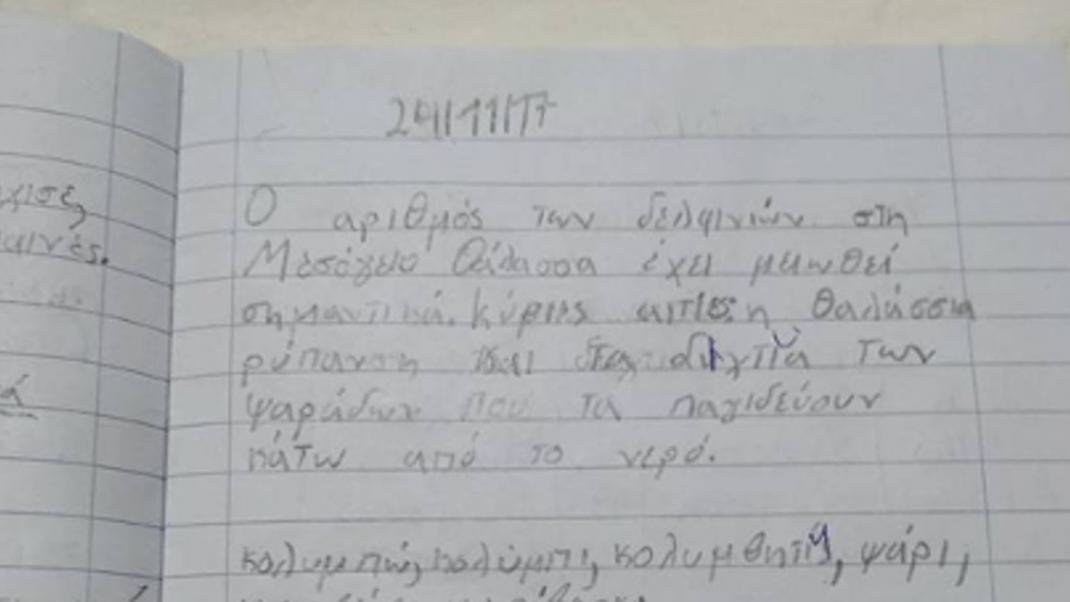 24/11/17
Ο αριθμός των δελφινιών στη
Μεσόγειο θάλασσα έχει μειωθεί
σημαντικά. Κύριες αιτίες: η θαλάσσια
ρύπανση και τα δίχτυα των
ψαράδων που τα παγιδεύουν
κάτω από το νερό.
κολυμπώ, κολύμπι, κολυμβητής, ψάρι,